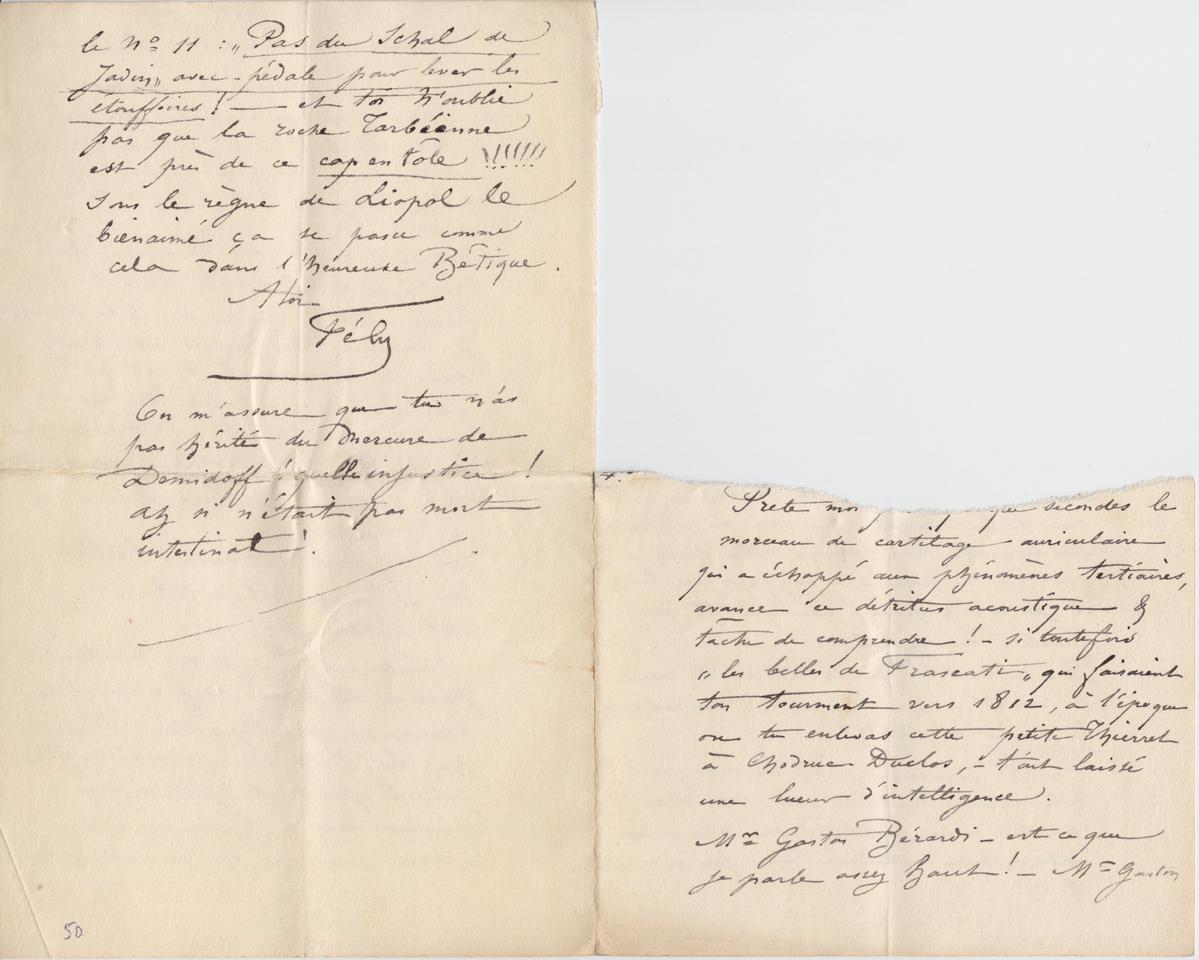 le Nº 11 : „Pas du Schal de
Jadin„ avec - pédale pour lever les
étouffoires ! — et toi n'oublie
pas que la roche Tarbéïenne
est près de ce cap en Tôle !!!!!!!
Sous le règne de Liopol le
bienaimé ça se passe comme
cela dans l'heureuse Bétique.
A toi
Fély
On m'assure que tu n'as
pas hérité du Mercure de
Demidoff ! quelle injustice !
intestinat !
Prete moi que secondes le
morceau de cartilage auriculaire
qui a échappé aux phénomènes tertiaires,
avance ce détritus acoustique &
tâche de comprendre ! - si toutefois
„les belles de Frascati„ qui faisaient
ton tourment vers 1812, à l'époque
ou tu enlevas cette petite Thierret
à Chodruc-Duclos, - t'ont laissé
une lueur d'intelligence.
Mr Gaston Bérardi - est ce que
je parle assez haut ! - Mr Gaston
50